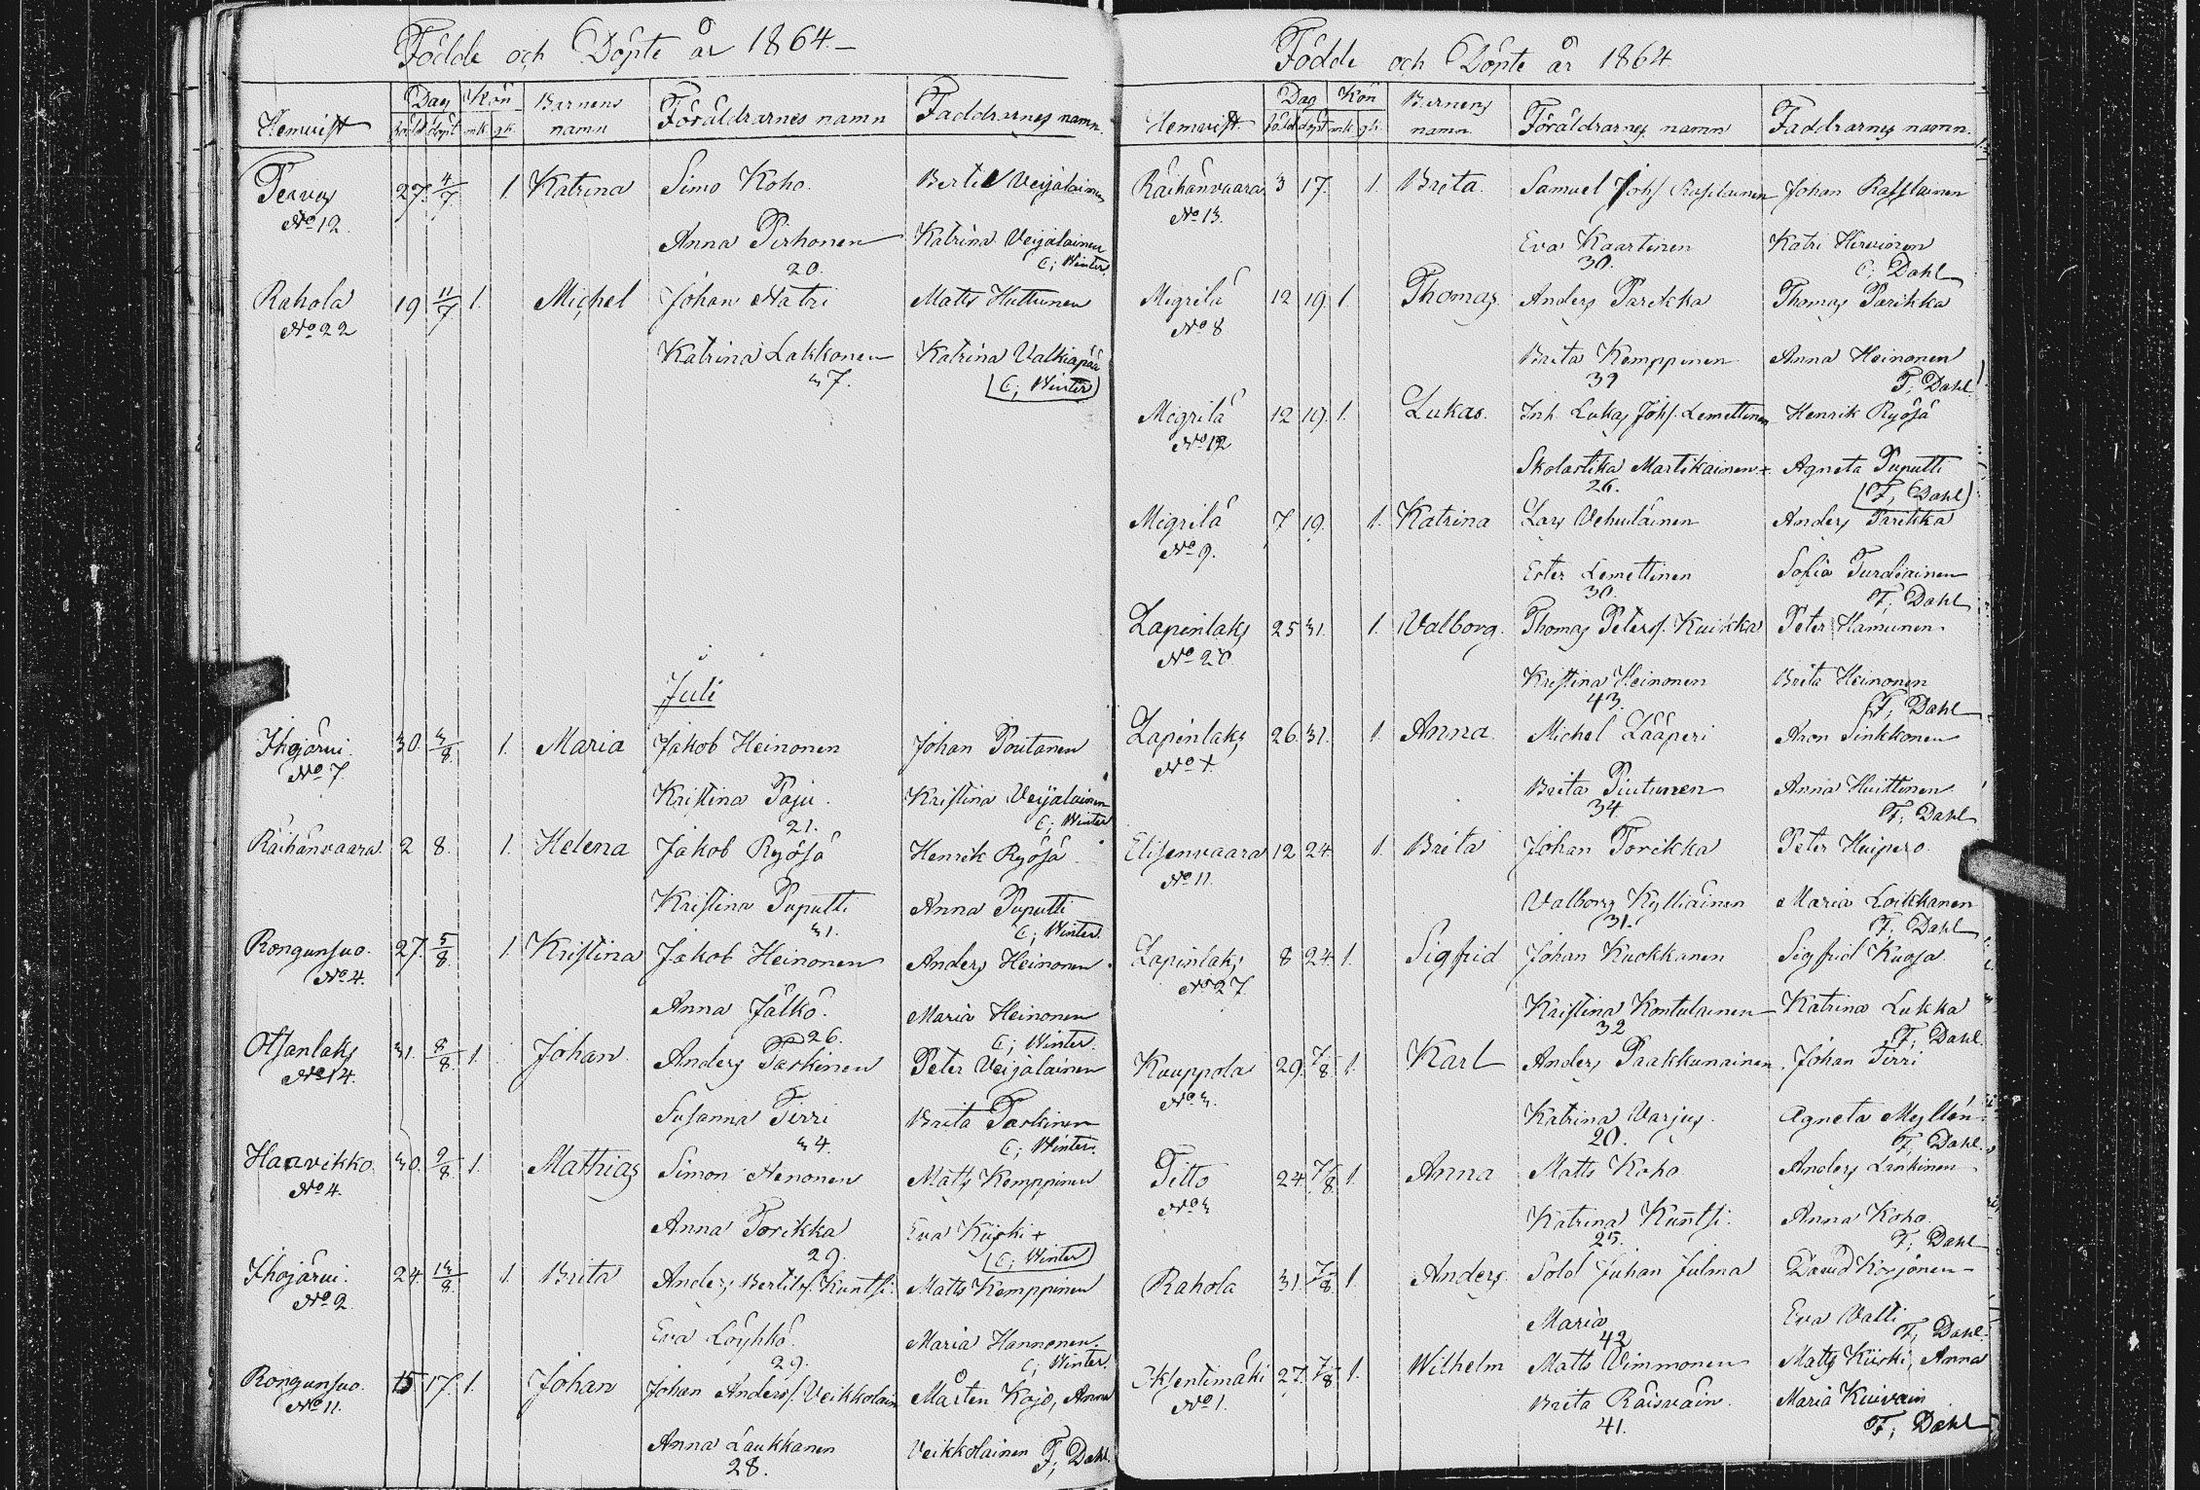 Födde och Döpte år 1864
Hemvist Dag Kön Barnens namn Föräldrarnes namn Faddrarnes namn
född döpt mk. qk.
Tervus 27. 4/7 1. Katrina Simo Koho. Bertil Veijalainen
No 12 Anna Pirhonen Katrina Veijalainen
20. C; Winter.
Rahola 19 11/7 1. Michel Johan Natri Matts Huttunen
No 22
Katrina Lakkonen Katrina Valkiapää
37. (C; Winter)
Juli
Ihojärvi. 30. 3/8. 1. Maria Jakob Heinonen Johan Poutanen
No 7.
Kristina Paju. Kristina Veijalainen
21. C; Winter
Räihänvaara 2 8. 1. Helena Jakob Ryösä Henrik Ryösä
Kristina Puputti Anna Puputti
31. C; Winter.
Rongunsuo. 27. 5/8. 1. Kristina Jakob Heinonen Anders Heinonen
No 4.
Anna Jälkö. Maria Heinonen
26. C; Winter.
Otsanlaks 31. 8/8. 1. Johan Anders Paskinen Peter Veijalainen
No 14.
Susanna Tirri Brita Paskinen
34. C; Winter.
Haavikko. 30. 9/8. 1. Mathias Simon Nenonen Matts Kemppinen
No 4.
Anna Torikka Eva Kiiski +
29. (C; Winter)
Ihojärvi. 24. 13/8. 1. Brita Anders Bertils. Kuntsi. Matts Kemppinen
No 2.
Eva Löyhkö. Maria Hannonen.
29. C; Winter.
Rongunsuo. 15 17. 1. Johan Johan Anderss. Veikkolain Mårten Kojo, Anna
No 11.
Anna Laukkanen Veikkolainen F; Dahl.
28.
Födde och Döpte år 1864
Hemvist. Dag Kön Barnens namn. Föräldrarnes namn Faddrarnes namn.
född döpt mk. qk.
Räihänvaara 3 17. 1. Brita. Samuel Johs. Rasilainen Johan Rasilainen
No 13.
Eva Kaartinen Katri Hirvonen
30. C; Dahl
Migrilä 12 19. 1. Thomas. Anders Parikka Thomas Parikka
No 8
Brita Kemppinen Anna Heinonen
39 F; Dahl
Migrilä 12 19. 1. Lukas. Inh. Lukas Johs. Lemettinen Henrik Ryösä
No 12
Skolastika Martikainen + Agneta Puputti
26. (F; Dahl)
Migrilä 7 19. 1. Katrina Lars Vehviläinen Anders Parikka
No 9.
Ester Lemettinen Sofia Turdiainen
30. F; Dahl
Lapinlaks 25 31. 1. Valborg. Thomas Peters. Kuikka Peter Hamunen.
No 20.
Kristina Heinonen Brita Heinonen
43. F; Dahl
Lapinlaks 26. 31. 1 Anna. Michel Lääperi Aron Sinkkonen
No
Brita Piutunen Anna Huittinen
34. F; Dahl
Elisenvaara 12 24. 1. Brita Johan Torikka Peter Huipero.
No 11.
Valborg Kylliäinen Maria Loikkanen
31. F; Dahl
Lapinlaks 8 24. 1. Sigfrid Johan Kuokkanen Sigfrid Kuosa.
No 27.
Kristina Kontulainen Katrina Lukka
32 F; Dahl.
Kauppola 29. 7/8. 1. Karl Anders Paakkunainen. Johan Tirri
No 3.
Katrina Varjus. Agneta Myllän
20. F; Dahl.
Titto 24. 7/8. 1. Anna Matts Koho Anders Laukinen
No 3
Katrina Kuntsi. Anna Koho.
25. F; Dahl
Rahola 31. 7/8. 1. Anders. Sold Juhan Julma David Korjonen
Maria Eva Valli
42 F; Dahl.
Iksentimäki 27. 7/8. 1. Wilhelm Matts Wimmonen Matts Kiiski, Anna
No 1.
Brita Räisäväin. Maria Kuivain
41. F; Dahl